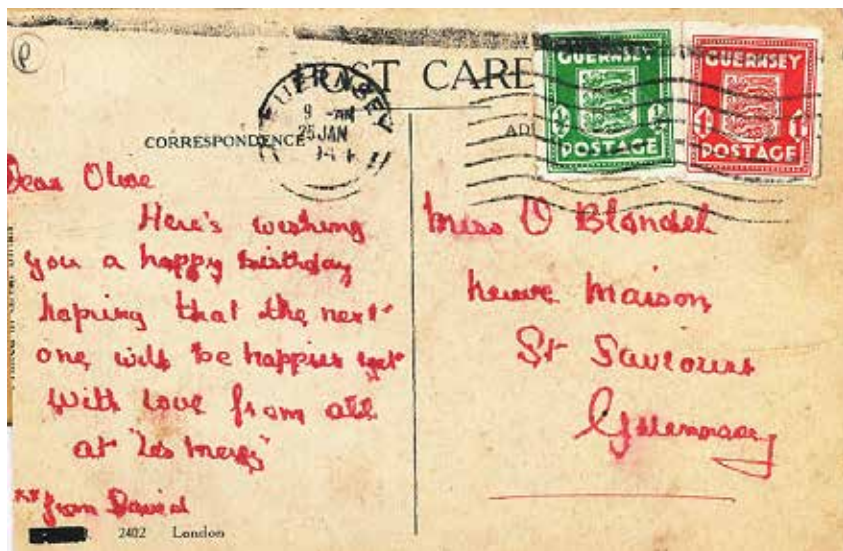 POST CARD
GUERNSEY
9 - AM
25 JAN
CORRESPONDENCE
GUERNSEY
½ ½
POSTAGE
GUERNSEY
1 1
POSTAGE
Dear Olive
Here's wishing
you a happy birthday
hoping that the next
one will be happier yet
With love from all
at "Les
**from David
2402 London
Miss O Blondel
Maison
St Saviours
Guernsey